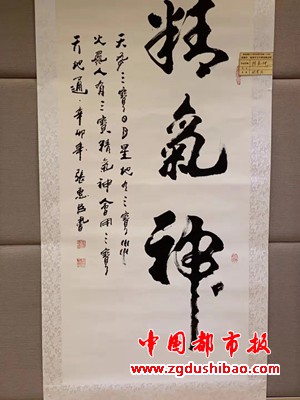 精氣神
天有三寶日月星地有三寶水
火風人有三寶精氣神會用三寶
天地通 辛卯年 張惠 書
中国都市报
www.zgdushibao.com